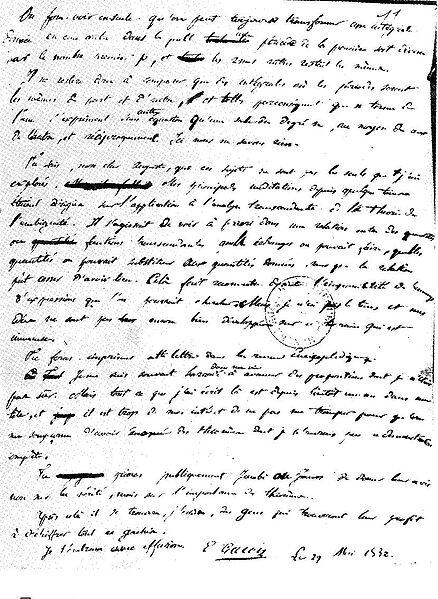 11
On peut voir ensuite qu'on peut toujours transformer une intégrale
donnée en une autre dans laquelle une période de la première soit divisée
par le nombre premier p, et les 2n-1 autres restent les mêmes.
Il ne restera donc à comparer que des intégrales où les périodes seront
les mêmes de part et d'autre, et telles par conséquent que n termes de
l'une s'expriment sans autre équation qu'une seule du degré n, au moyen de ceux
de l'autre, et réciproquement. Ici nous ne savons rien.
Tu sais, mon cher Auguste, que ces sujets ne sont pas les seuls que j'aie
explorés. Mes principales méditations depuis quelque temps
étaient dirigées sur l'application à l'analyse transcendante de la théorie de
l'ambiguité. Il s'agissait de voir a priori dans une relation entre des quantités
ou fonctions transcendantes quels échanges on pouvait faire, quelles
quantités on pouvait substituer aux quantités données sans que la relation
pût cesser d'avoir lieu. Cela fait reconnaitre tout de suite l'impossibilité de beaucoup
d'expressions que l'on pourrait chercher. Mais je n'ai pas le temps et mes
idées ne sont pas encore bien développées sur ce terrain qui est
immense.
Tu feras imprimer cette lettre dans la revue Encyclopédique.
Je me suis souvent hasardé dans ma vie à avancer des propositions dont je n'étais
pas sûr. Mais tout ce que j'ai écrit là est depuis bientôt un an dans ma
tête, et il est trop de mon intérêt de ne pas me tromper pour qu'on
me soupçonne d'avoir énoncé des théorèmes dont je n'aurais pas la démonstration
complète.
Tu prieras publiquement Jacobi ou Gauss de donner leur avis
non sur la vérité, mais sur l'importance des théorèmes.
Après cela il se trouvera, j'espère, des gens qui trouveront leur profit
à déchiffrer tout ce gachis.
Je t'embrasse avec effusion. E Galois Le 29 Mai 1832.